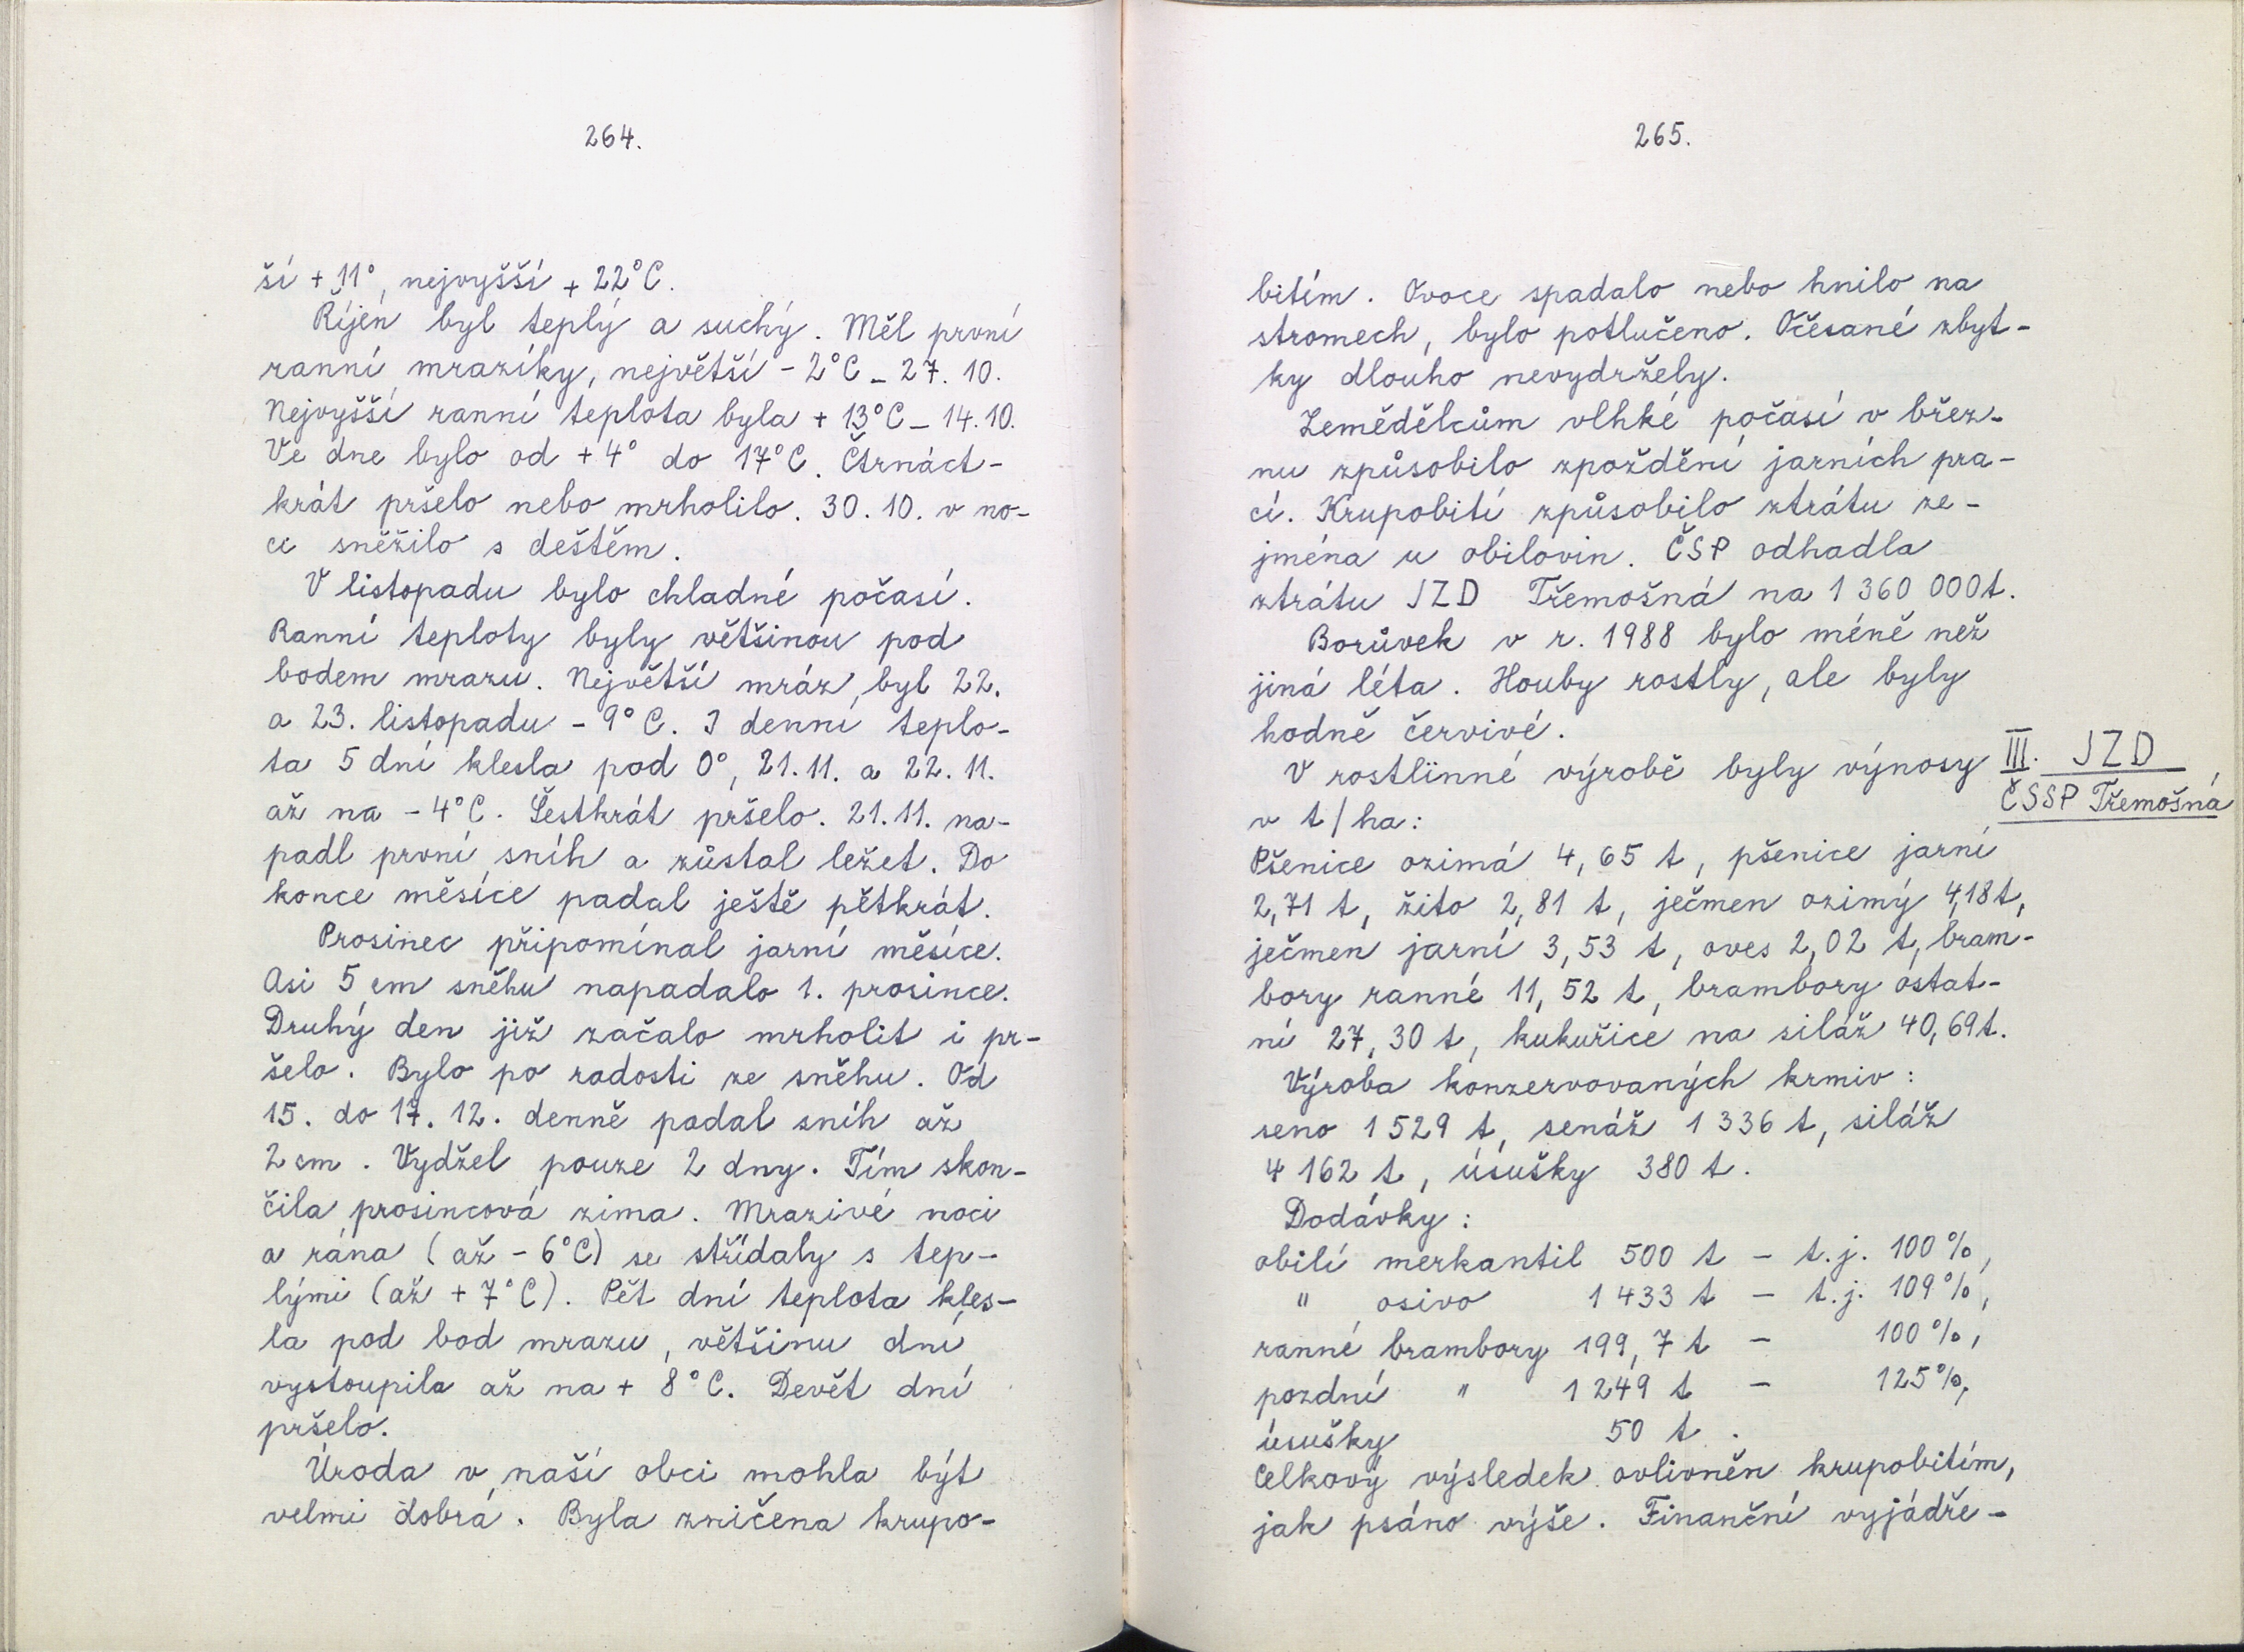 264.
ší + 11°, nejvyšší + 22°C.
Říjen byl teplý a suchý. Měl první
ranní mrazíky, největší - 2°C - 27. 10.
Nejvyšší ranní teplota byla + 13°C - 14. 10.
Ve dne bylo od + 4° do 17°C. Čtrnáct-
krát pršelo nebo mrholilo. 30. 10. v no-
ci sněžilo s deštěm.
V listopadu bylo chladné počasí.
Ranní teploty byly většinou pod
bodem mrazu. Největší mráz byl 22.
a 23. listopadu - 9°C. I denní teplo-
ta 5 dní klesla pod 0°, 21. 11. a 22. 11.
až na - 4°C. Šestkrát pršelo. 21. 11. na-
padl první sníh a zůstal ležet. Do
konce měsíce padal ještě pětkrát.
Prosinec připomínal jarní měsíce.
Asi 5 cm sněhu napadalo 1. prosince.
Druhý den již začalo mrholit i pr-
šelo. Bylo po radosti ze sněhu. Od
15. do 17. 12. denně padal sníh až
2 cm. Vydžel pouze 2 dny. Tím skon-
čila prosincová zima. Mrazivé noci
a rána (až - 6°C) se střídaly s tep-
lými (až + 7°C). Pět dní teplota kles-
la pod bod mrazu, většinu dní
vystoupila až na + 8°C. Devět dní
pršelo.
Úroda v naší obci mohla být
velmi dobrá. Byla zničena krupo-
265.
bitím. Ovoce spadalo nebo hnilo na
stromech, bylo potlučeno. Očesané zbyt-
ky dlouho nevydržely.
Zemědělcům vlhké počasí v břez-
nu způsobilo zpoždění jarních pra-
cí. Krupobití způsobilo ztrátu ze-
jména u obilovin. ČSP odhadla
ztrátu JZD Třemošná na 1 360 000 t.
Borůvek v r. 1988 bylo méně než
jiná léta. Houby rostly, ale byly
hodně červivé.
V rostlinné výrobě byly výnosy
III. JZD
ČSSP Třemošná
v t/ha:
Pšenice ozimá 4,65 t, pšenice jarní
2,71 t, žito 2,81 t, ječmen ozimý 4,18 t,
ječmen jarní 3,53 t, oves 2,02 t, bram-
bory ranné 11,52 t, brambory ostat-
ní 27,30 t, kukuřice na siláž 40,69 t.
Výroba konzervovaných krmiv:
seno 1 529 t, senáž 1 336 t, siláž
4 162 t, úsušky 380 t.
Dodávky:
obilí merkantil 500 t - t.j. 100 %,
" osivo 1 433 t - t.j. 109 %,
ranné brambory 199,7 t - 100 %,
pozdní " 1 249 t - 125 %,
úsušky 50 t.
Celkový výsledek ovlivněn krupobitím,
jak psáno výše. Finanční vyjádře-